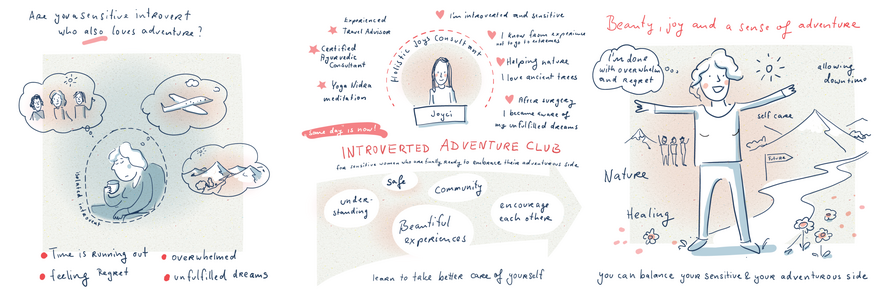 Are you a sensitive introvert
who also loves adventure?
isolated introvert
Time is running out
feeling Regret
overwhelmed
unfulfilled dreams
Experienced
Travel Advisor
Certified
Ayurvedic
Consultant
Yoga Nidra
meditation
Holistic Joys Consultant
Joyci
I'm introverted and sensitive
I know from experience
Helping nature
I love ancient trees
After surgery
I became aware of
my unfulfilled dreams
some day is now!
INTROVERTED ADVENTURE CLUB
for sensitive women who are finally ready to embrace their adventurous side
under-
standing
safe
Community
Beautiful
experiences
encourage
each other
learn to take better care of yourself
Beauty, joy and a sense of adventure
I'm done
with overwhelm
and regret
allowing
downtime
self care
Nature
Healing
you can balance your sensitive & your adventurous side